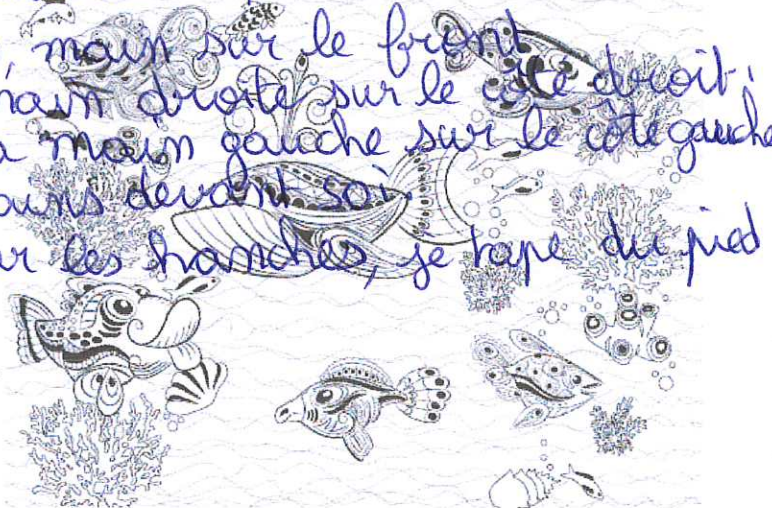 main sur le front
main droite sur le côté droit,
main gauche sur le côté gauche
mains devant soi.
les hanches, je tape du pied